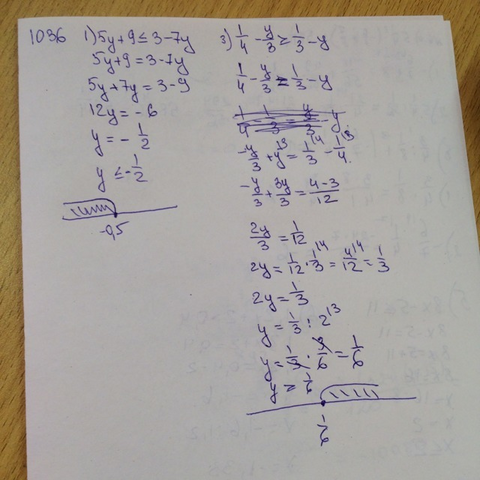 1036 1) 5y + 9 ≤ 3 - 7y
5y + 9 = 3 - 7y
5y + 7y = 3 - 9
12y = - 6
y = - 1/2
y ≤ - 1/2
-0,5
3) 1/4 - y/3 ≥ 1/3 - y
1/4 - y/3 = 1/3 - y
-y/3 + y^13 = 1/3^14 - 1/4^13
-y/3 + 3y/3 = 4-3/12
2y/3 = 1/12
2y = 1/12 · 1/3^14 = 4/12^14 = 1/3
2y = 1/3
y = 1/3 : 2^13
y = 1/3 · 3/6 = 1/6
y ≥ 1/6
1/6